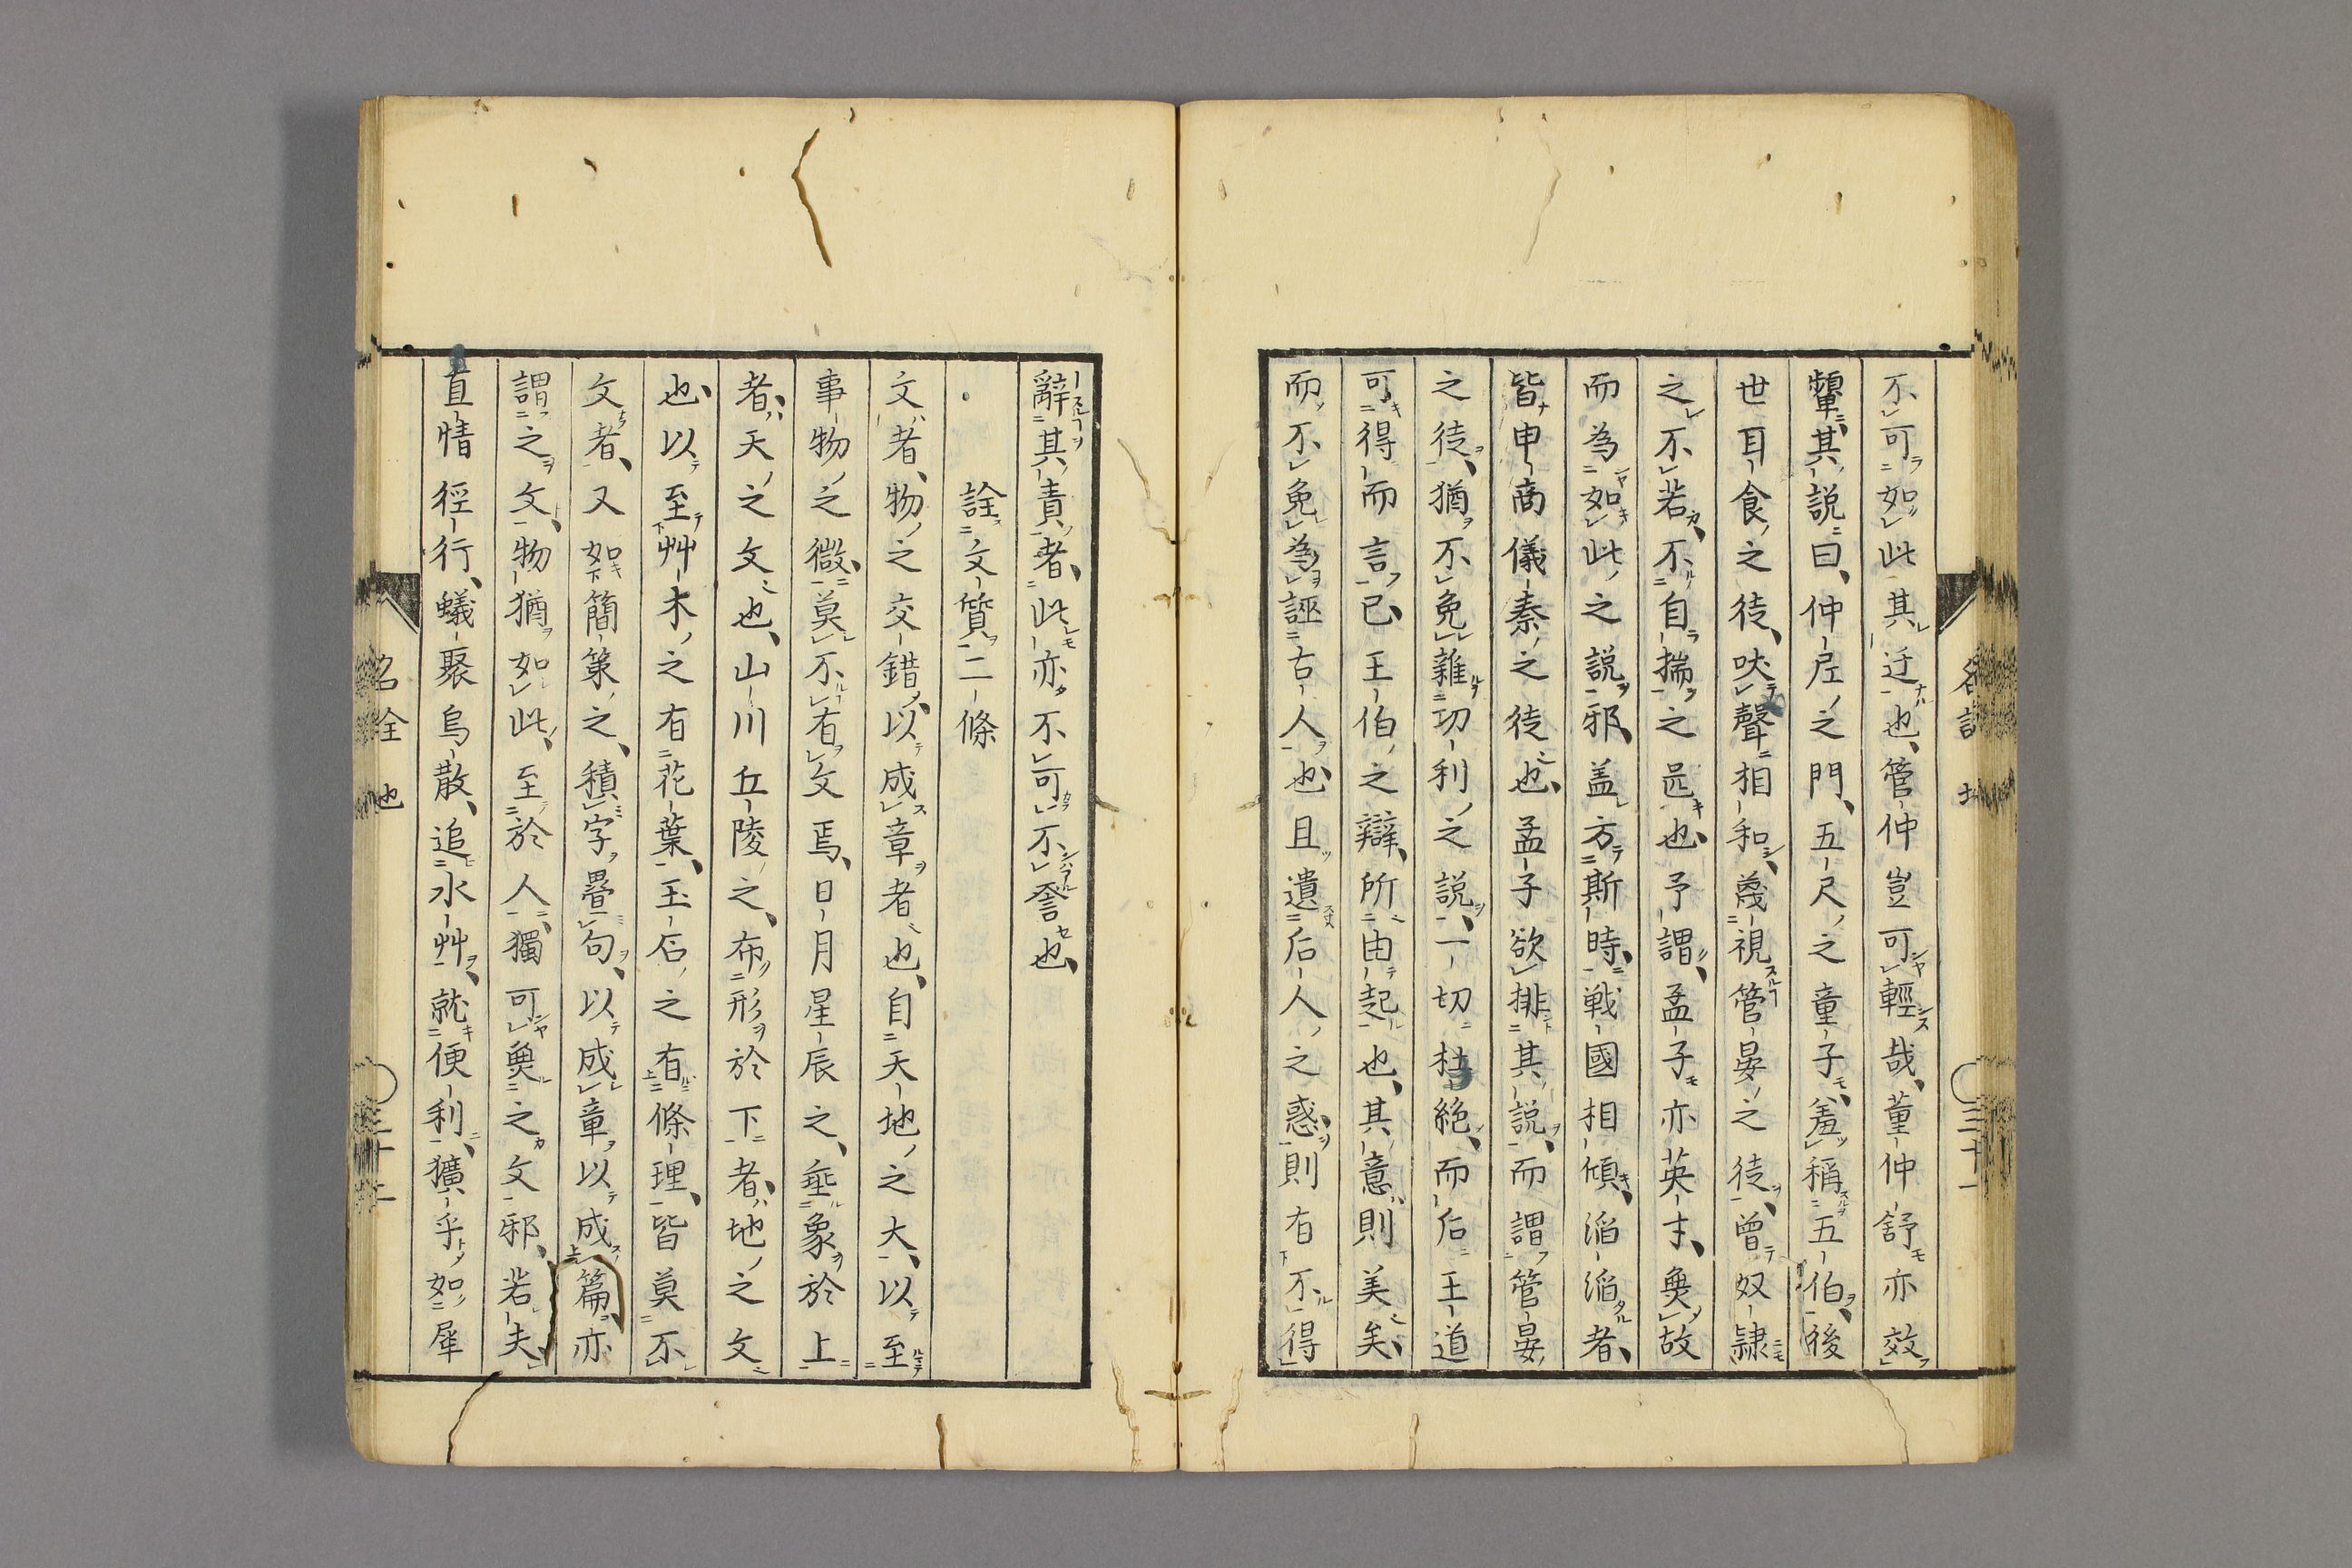 不可如此其迂也、管仲豈可輕哉、董仲舒亦效
顰其說曰、仲尼之門、五尺之童子、羞稱五伯、後
世耳食之徒、吠聲相和、蔑視管晏之徒、曾奴隸
之不若、不自揣之甚也、予謂、孟子亦英才、與故
而為如此之說邪、盖方斯時、戰國相傾、滔滔者、
皆申商儀秦之徒也、孟子欲排其說、而謂管晏
之徒、猶不免雜功利之說、一切杜絕、而后王道
可得而言已、王伯之辯、所由起也、其意則美矣、
而不免為誣古人也且遺后人之惑、則有不得
辭其責者、此亦不可不詧也、
詮文質二條
文者、物之交錯、以成章者也、自天地之大、以至
事物之微、莫不有文焉、日月星辰之、垂象於上
者、天之文也、山川丘陵之、布形於下者、地之文
也、以至艸木之有花葉、玉石之有條理、皆莫不
文者、又如簡策之、積字疊句、以成章以成篇、亦
謂之文、物猶如此、至於人、獨可與之文邪、若夫
直情徑行、蟻聚烏散、追水艸、就便利、獷乎如犀
名詮 地
〇三十一
名詮 地
〇三十二